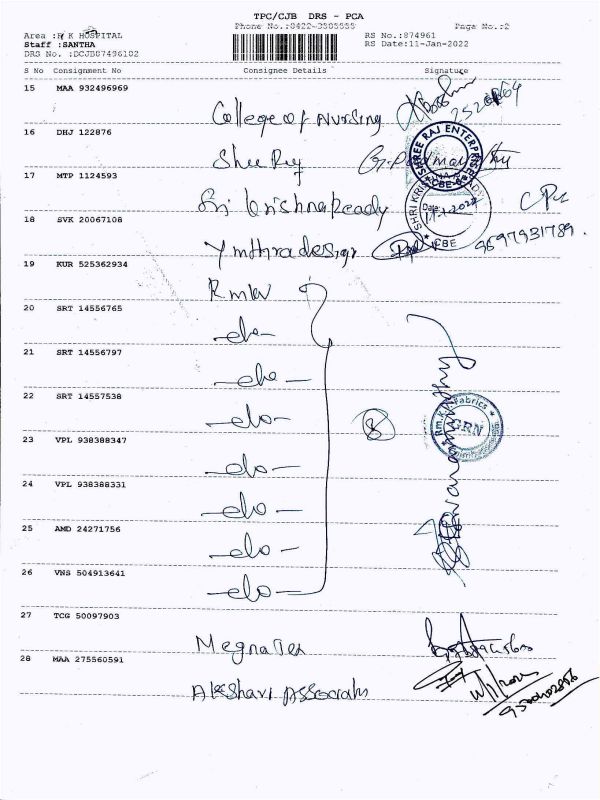 TPC/CJB DRS - PCA
Phone No.:0422-3505555 Page No.:2
Area :R K HOSPITAL RS No.:874961
Staff :SANTHA RS Date:11-Jan-2022
DRS No. :DCJB87496102
S No Consignment No Consignee Details Signature
15 MAA 932496969
College of Nursing
16 DHJ 122876
Shree Raj
SHREE RAJ ENTERPRISES
CBE-6
17 MTP 1124593
Sri Krishna Ready
SHRI KRISHNA READYS
Date:
CBE
18 SVK 20067108
Ymthra design
9597931789.
19 KUR 525362934
RmKV
20 SRT 14556765
-do-
21 SRT 14556797
-do-
22 SRT 14557538
-do-
8
Rm.K.V. Fabrics
GRN
23 VPL 938388347
-do-
24 VPL 938388331
-do-
25 AMD 24271756
-do-
26 VNS 504913641
-do-
27 TCG 50097903
Megna Tex
28 MAA 275560591
Akshari Assocrats